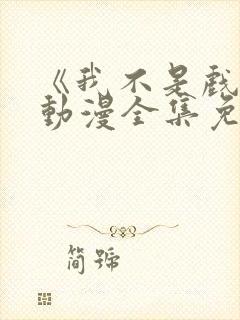 《我不是戲
動漫全集免
簡號